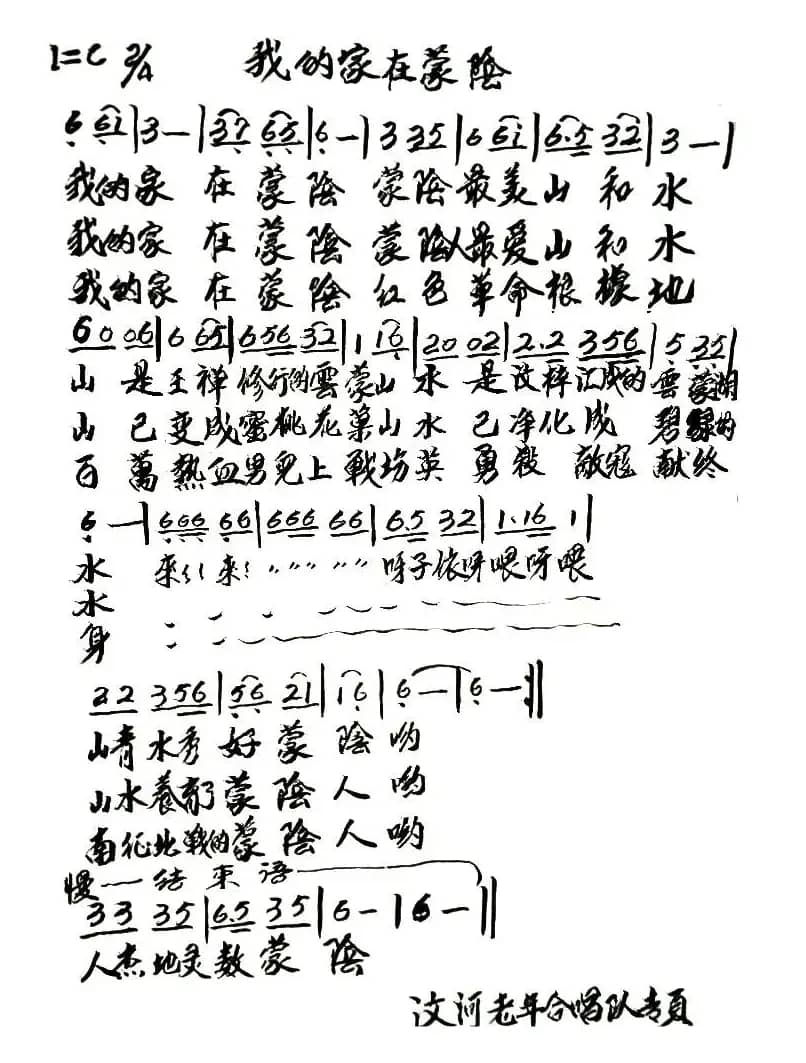 1=C 2/4 我的家在蒙陰
6 6i | 3 — | 37 65 | 6 — | 3 35 | 6 6i | 6.5 32 | 3 — |
我的家 在 蒙 陰 蒙陰最美山 和 水
我的家 在 蒙 陰 蒙陰人最爱山 和 水
我的家 在 蒙 陰 红色革命根據地
60 06 | 6 65 | 656 32 | 1 16 | 20 02 | 2.2 356 | 5 35 |
山 是王禅修行的雲蒙山 水 是汶梓汇成的雲蒙湖
山 已变成蜜桃花菓山水 已净化成 碧绿的
百 萬熱血男兒上戰场英 勇殺 敵寇献终
6 — | 666 66 | 666 66 | 6.5 32 | 1.16 1 |
水 來 來 呀子依呀喂呀喂
水
身
22 356 | 56 21 | 16 | 6 — | 6 — :||
山青水秀好蒙 陰哟
山水養育了蒙陰人 哟
南征北戰的蒙陰人 哟
慢 — 结 束 语 —
33 35 | 6.5 35 | 6 — | 6 — ||
人杰地灵数蒙 陰
汶河老年合唱队专頁